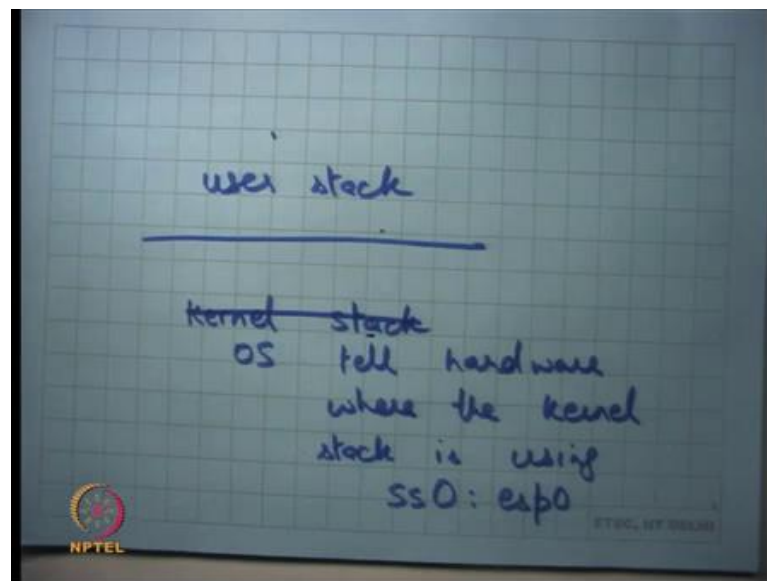 user stack
kernel stack
OS tell hardware
where the kernel
stack is using
ss0: esp0
NPTEL
ETSC, IIT DELHI